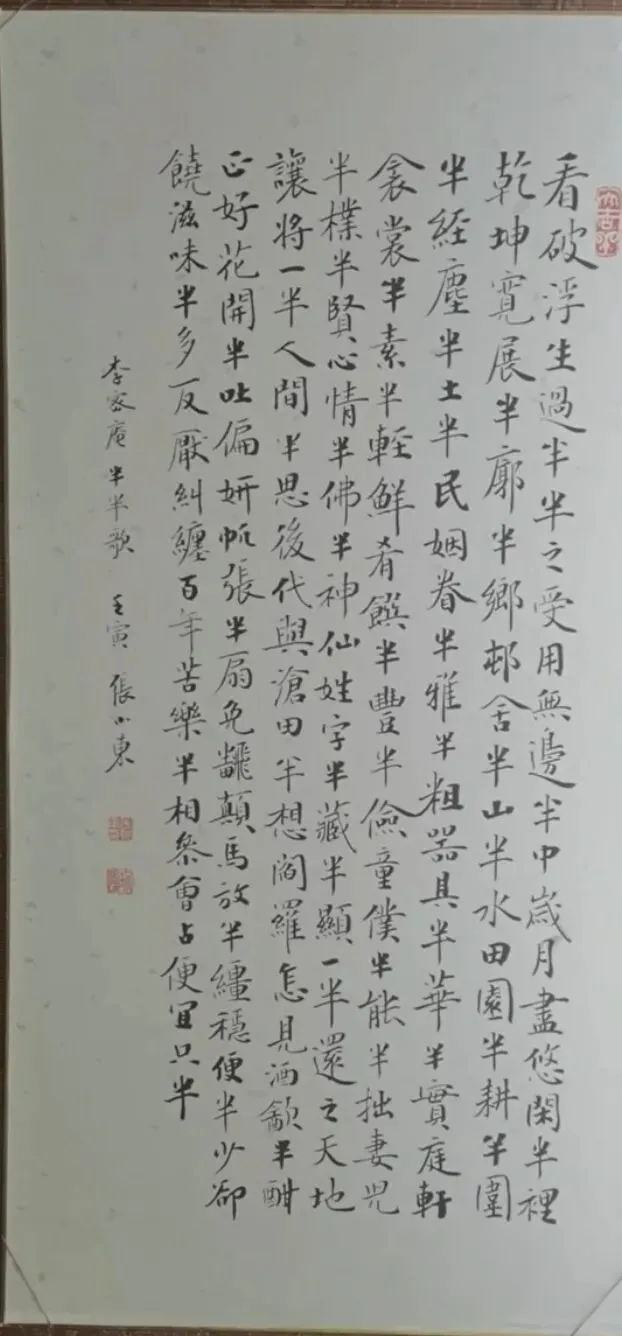 看破浮生過半半之受用無邊半中歲月盡悠閑半裡
乾坤寬展半廓半鄉邨舍半山半水田園半耕半圍
半經塵半士半民姻眷半雅半粗器具半華半實庭軒
衾裳半素半輕鮮肴饌半豐半儉童僕半能半拙妻兒
半樸半賢心情半佛半神仙姓字半藏半顯一半還之天地
讓將一半人間半思後代與滄田半想閻羅怎見酒飲半酣
正好花開半吐偏妍帆張半扇免翻顛馬放半韁穩便半少卻
饒滋味半多反厭糾纏百年苦樂半相參會占便宜只半
李密庵半半歌 壬寅 張小東